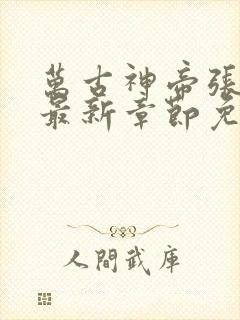 萬古神帝張
最新章節免
人間武庫